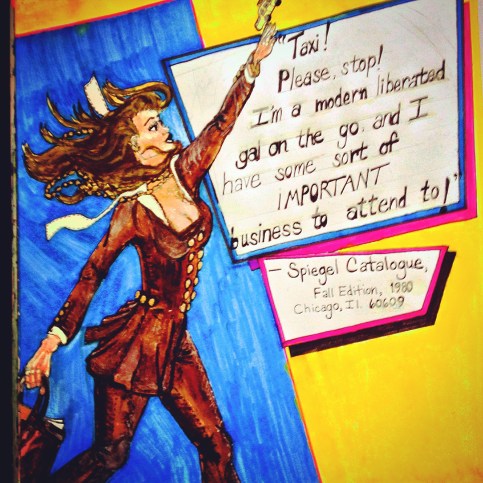 "Taxi!
Please, stop!
I'm a modern liberated
gal on the go. and I
have some sort of
IMPORTANT
business to attend to!"
— Spiegel Catalogue,
Fall Edition, 1980
Chicago, Il. 60609